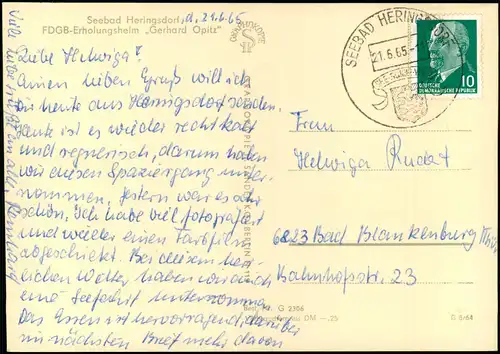 Seebad Heringsdorf, d. 21.6.65
FDGB-Erholungsheim „Gerhard Opitz"
Liebe Helwiga!
Einen lieben Gruß will ich
Dir heute aus Heringsdorf senden.
Heute ist es wieder recht kalt
und regnerisch, darum haben
wir einen Spaziergang unter-
nommen. Gestern war es sehr
schön. Ich habe viel fotografiert
und wieder einen Farbfilm
abgeschickt. Bei diesem herr-
lichen Wetter haben wir auch
eine Seefahrt unternommen
Das Essen ist hervorragend, darüber
im nächsten Brief mehr davon
Viele liebe Grüße an alle
SEEBAD HERINGSDORF
21.6.65
DEUTSCHE
DEMOKRATISCHE REPUBLIK
10
Frau
Helwiga Rudat
6823 Bad Blankenburg/Thür.
Bahnhofstr. 23
Best.-Nr. G 2306
DM —,25
G 8/64